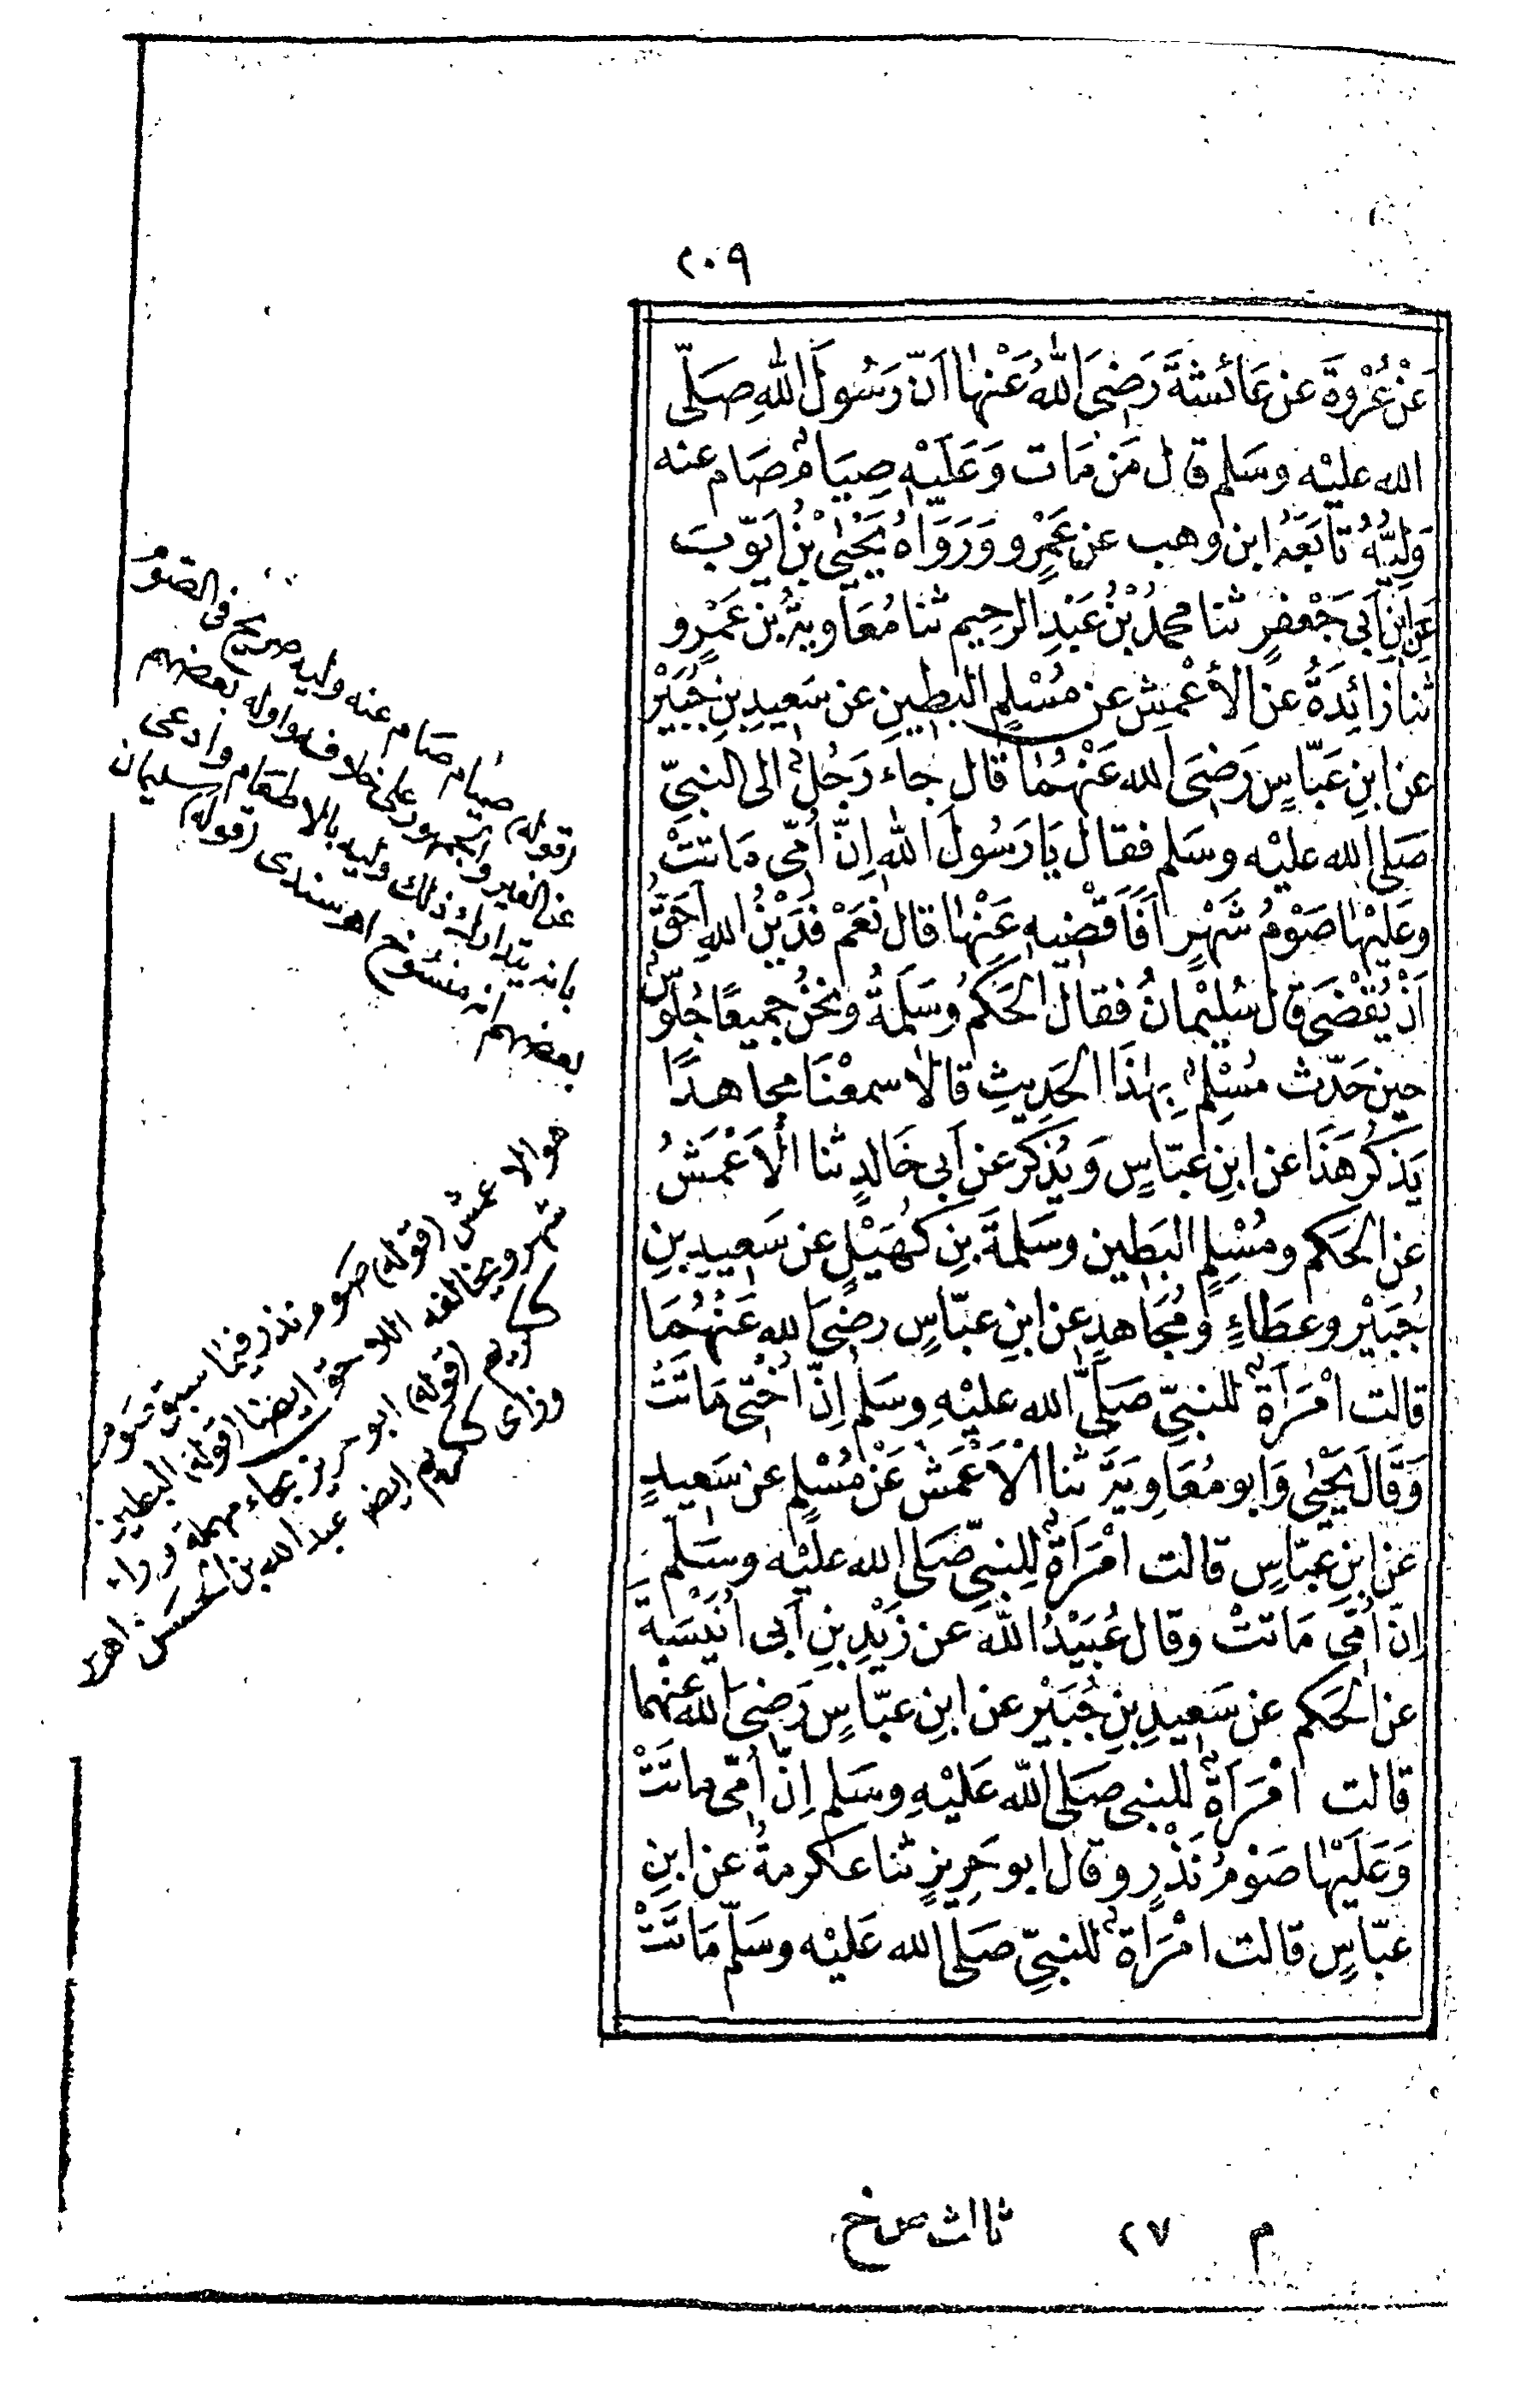 ٢٠٩
عَنْ عُرْوَةَ عن عَائشةَ رَضِىَ اللهُ عَنْها اَنّ رَسُولَ اللهِ صَلّى
الله عليْه وسَلم قال مَن مَات وَعَلَيْهِ صِيَامٌ صَام عنه
وَلِيُّهُ تابَعَهُ ابن وهب عن عَمْرٍو وَرَوَاهُ يَحْيٰى بْنُ ايّوبَ
عَنِ ابْنِ اَبى جَعْفرٍ ثنا محمدُ بْنُ عَبْدِ الرحِيم ثنا مُعَاوِيةُ بْن عَمْرٍو
ثنا زَائِدَةُ عن الأعْمَشِ عن مُسْلِمٍ البَطِينِ عن سَعِيدِ بنِ جُبَيْرٍ
عن ابنِ عَبّاسٍ رَضِىَ الله عَنْهُما قال جاء رَجُلٌ الى النبىِّ
صَلى الله عليْه وسَلم فقال يَا رَسُولَ اللهِ اِنَّ اُمّى مَاتتْ
وعَلَيْها صَوْمُ شَهْرٍ اَفَاَقْضِيهِ عَنْها قال نَعَمْ فدَيْنُ اللهِ اَحَقُّ
اَنْ يُقْضَى قال سُليْمانُ فقال الحَكَمُ وسَلَمةُ ونَحْنُ جَمِيعًا جُلُوسٌ
حِين حَدّث مُسْلِمٌ بِهٰذَا الحَدِيثِ قالا سمعْنَا مجاهدًا
يَذكُرُ هَذَا عن ابنِ عبّاسٍ وَيُذكَرُ عن اَبى خَالدٍ ثنا الاَعْمَشُ
عن الحَكَم ومُسْلِمٍ البَطِين وسَلمةَ بنِ كُهَيْلٍ عن سَعِيدِ بنِ
جُبَيْرٍ وعَطَاءٍ ومُجَاهدٍ عن ابنِ عبّاسٍ رضِىَ الله عَنْهُمَا
قالت امْرَأةٌ للنبىِّ صَلَّى الله عليْهِ وسَلم اِنّ اُخْتى مَاتَتْ
وَقَالَ يَحْيٰى وَابو مُعَاوِيَةَ ثنا الاَعْمَشُ عَنْ مُسْلِمٍ عن سَعِيدٍ
عن ابنِ عبّاسٍ قالت امْرَأةٌ لِلنبىِّ صَلى الله عليْه وسَلّم
اِنّ اُمّى مَاتتْ وقال عُبَيْدُ اللهِ عن زَيْدِ بنِ اَبى اُنَيْسَةَ
عن الحَكَم عن سَعِيدِ بنِ جُبَيْرٍ عن ابنِ عبّاسٍ رَضِىَ الله عنهما
قالت امْرَأةٌ للنبى صَلى اللّه عَليْهِ وسَلم اِنّ اُمّى ماتَتْ
وَعَلَيْها صَوْمُ نَذْرٍ وقال ابو حَرِيزٍ ثنا عكرمةُ عن ابنِ
عبّاسٍ قالت امْرَاةٌ للنبىِّ صَلى الله عَليْه وسَلّم مَاتَتْ
(قوله) صيام صَام عنه وليه صريح فى الصّومُ
عن الغير والجمهور على خلافه واوله بعضهم
بانه يتدارك ذلك وليه بالاطعَام وادعى
بعضهم انه منسُوخ اهـ سندى (قوله) سليمان
هو الاعمش (قوله) صَوم نذر فيما سبق صَوم
شهر ويخالفه اللاحق ايضا (قوله) البطين
كاريم (قوله) ابو حريز بحاء مهملة وراء
وزاى كاريم ايضا عبد الله بن الحسَين اهـ
م ٢٧ ثالث من خ